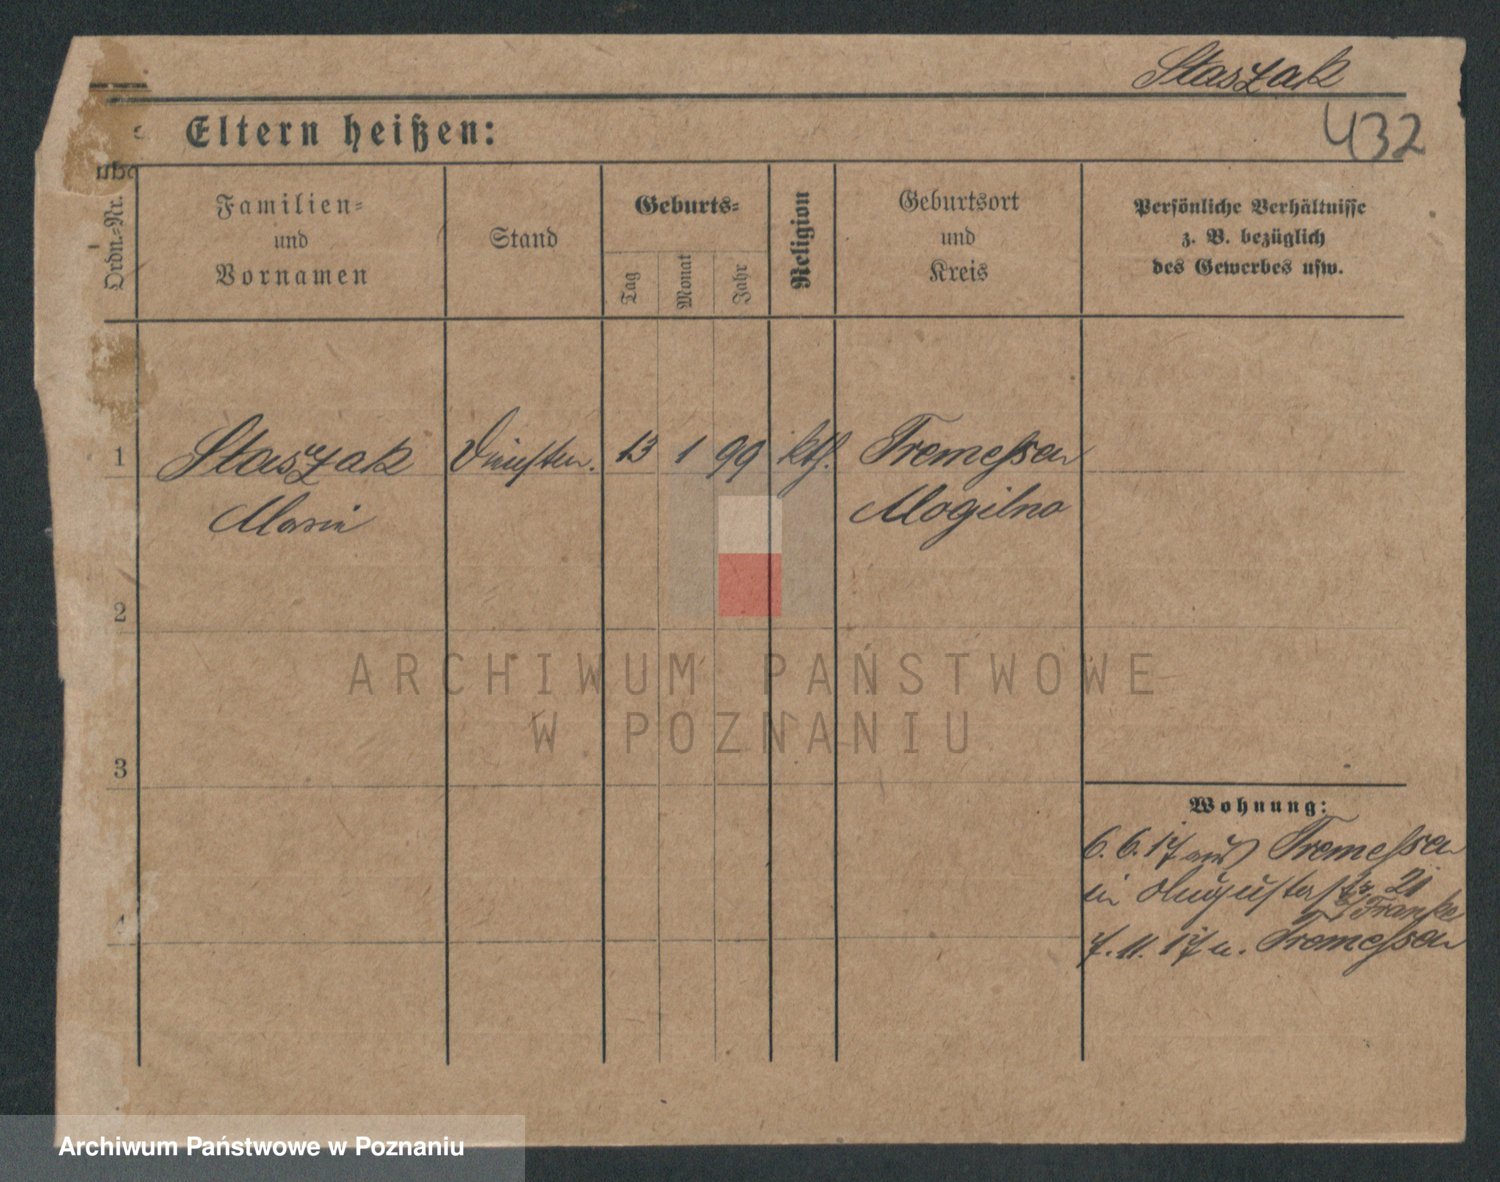 Staszak
432
Eltern heißen:
Ordn.-Nr.
Familien-
und
Vornamen
Stand
Geburts-
Tag
Monat
Jahr
Religion
Geburtsort
und
Kreis
Persönliche Verhältnisse
z. B. bezüglich
des Gewerbes usw.
1 Staszak 13 1 99 kth. Tremessen
Marie Mogilno
2
ARCHIWUM PAŃSTWOWE
W POZNANIU
3
Wohnung:
6.6.17 aus Tremessen
in Augustastr. 21
b/ Franke
4
7.11.17 n. Tremessen
Archiwum Państwowe w Poznaniu